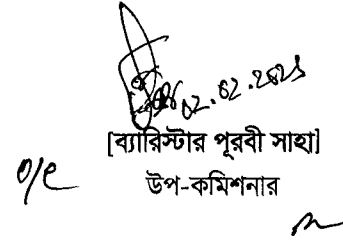 02.02.2025
[ব্যারিস্টার পূরবী সাহা]
উপ-কমিশনার
o/c